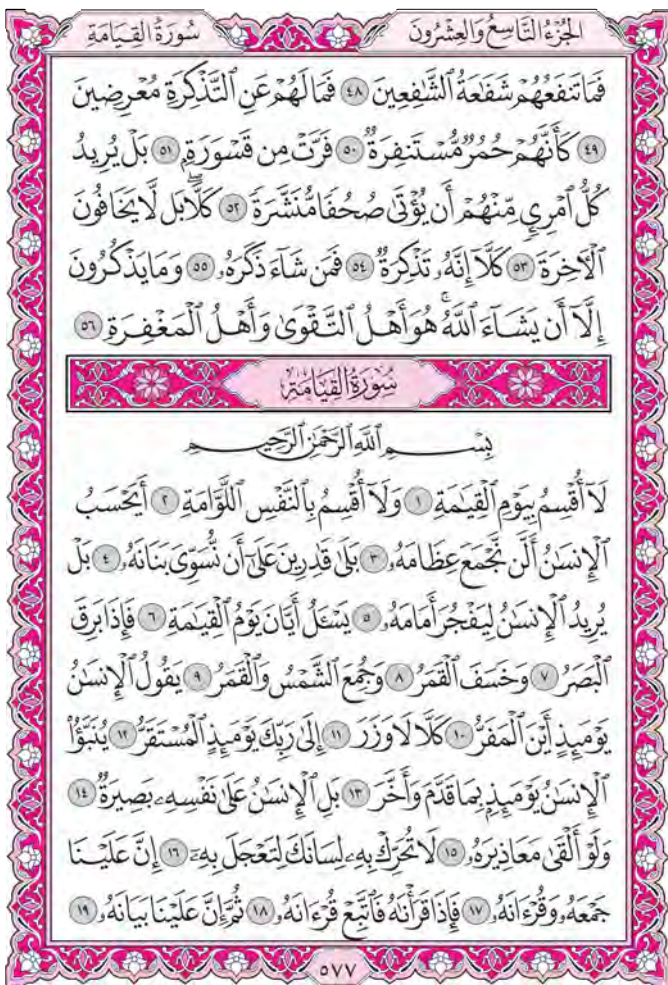 الجُزْءُ التَّاسِعُ وَالعِشْرُونَ سُورَةُ القِيَامَةِ
فَمَا تَنفَعُهُمْ شَفَٰعَةُ ٱلشَّٰفِعِينَ ٤٨ فَمَا لَهُمْ عَنِ ٱلتَّذْكِرَةِ مُعْرِضِينَ
٤٩ كَأَنَّهُمْ حُمُرٌ مُّسْتَنفِرَةٌ ٥٠ فَرَّتْ مِن قَسْوَرَةٍۭ ٥١ بَلْ يُرِيدُ
كُلُّ ٱمْرِئٍ مِّنْهُمْ أَن يُؤْتَىٰ صُحُفًا مُّنَشَّرَةً ٥٢ كَلَّاۖ بَل لَّا يَخَافُونَ
ٱلْءَاخِرَةَ ٥٣ كَلَّآ إِنَّهُۥ تَذْكِرَةٌ ٥٤ فَمَن شَآءَ ذَكَرَهُۥ ٥٥ وَمَا يَذْكُرُونَ
إِلَّآ أَن يَشَآءَ ٱللَّهُۚ هُوَ أَهْلُ ٱلتَّقْوَىٰ وَأَهْلُ ٱلْمَغْفِرَةِ ٥٦
سُورَةُ القِيَامَةِ
بِسْمِ ٱللَّهِ ٱلرَّحْمَٰنِ ٱلرَّحِيمِ
لَآ أُقْسِمُ بِيَوْمِ ٱلْقِيَٰمَةِ ١ وَلَآ أُقْسِمُ بِٱلنَّفْسِ ٱللَّوَّامَةِ ٢ أَيَحْسَبُ
ٱلْإِنسَٰنُ أَلَّن نَّجْمَعَ عِظَامَهُۥ ٣ بَلَىٰ قَٰدِرِينَ عَلَىٰٓ أَن نُّسَوِّىَ بَنَانَهُۥ ٤ بَلْ
يُرِيدُ ٱلْإِنسَٰنُ لِيَفْجُرَ أَمَامَهُۥ ٥ يَسْـَٔلُ أَيَّانَ يَوْمُ ٱلْقِيَٰمَةِ ٦ فَإِذَا بَرِقَ
ٱلْبَصَرُ ٧ وَخَسَفَ ٱلْقَمَرُ ٨ وَجُمِعَ ٱلشَّمْسُ وَٱلْقَمَرُ ٩ يَقُولُ ٱلْإِنسَٰنُ
يَوْمَئِذٍ أَيْنَ ٱلْمَفَرُّ ١٠ كَلَّا لَا وَزَرَ ١١ إِلَىٰ رَبِّكَ يَوْمَئِذٍ ٱلْمُسْتَقَرُّ ١٢ يُنَبَّؤُا۟
ٱلْإِنسَٰنُ يَوْمَئِذٍۭ بِمَا قَدَّمَ وَأَخَّرَ ١٣ بَلِ ٱلْإِنسَٰنُ عَلَىٰ نَفْسِهِۦ بَصِيرَةٌ ١٤
وَلَوْ أَلْقَىٰ مَعَاذِيرَهُۥ ١٥ لَا تُحَرِّكْ بِهِۦ لِسَانَكَ لِتَعْجَلَ بِهِۦٓ ١٦ إِنَّ عَلَيْنَا
جَمْعَهُۥ وَقُرْءَانَهُۥ ١٧ فَإِذَا قَرَأْنَٰهُ فَٱتَّبِعْ قُرْءَانَهُۥ ١٨ ثُمَّ إِنَّ عَلَيْنَا بَيَانَهُۥ ١٩
٥٧٧